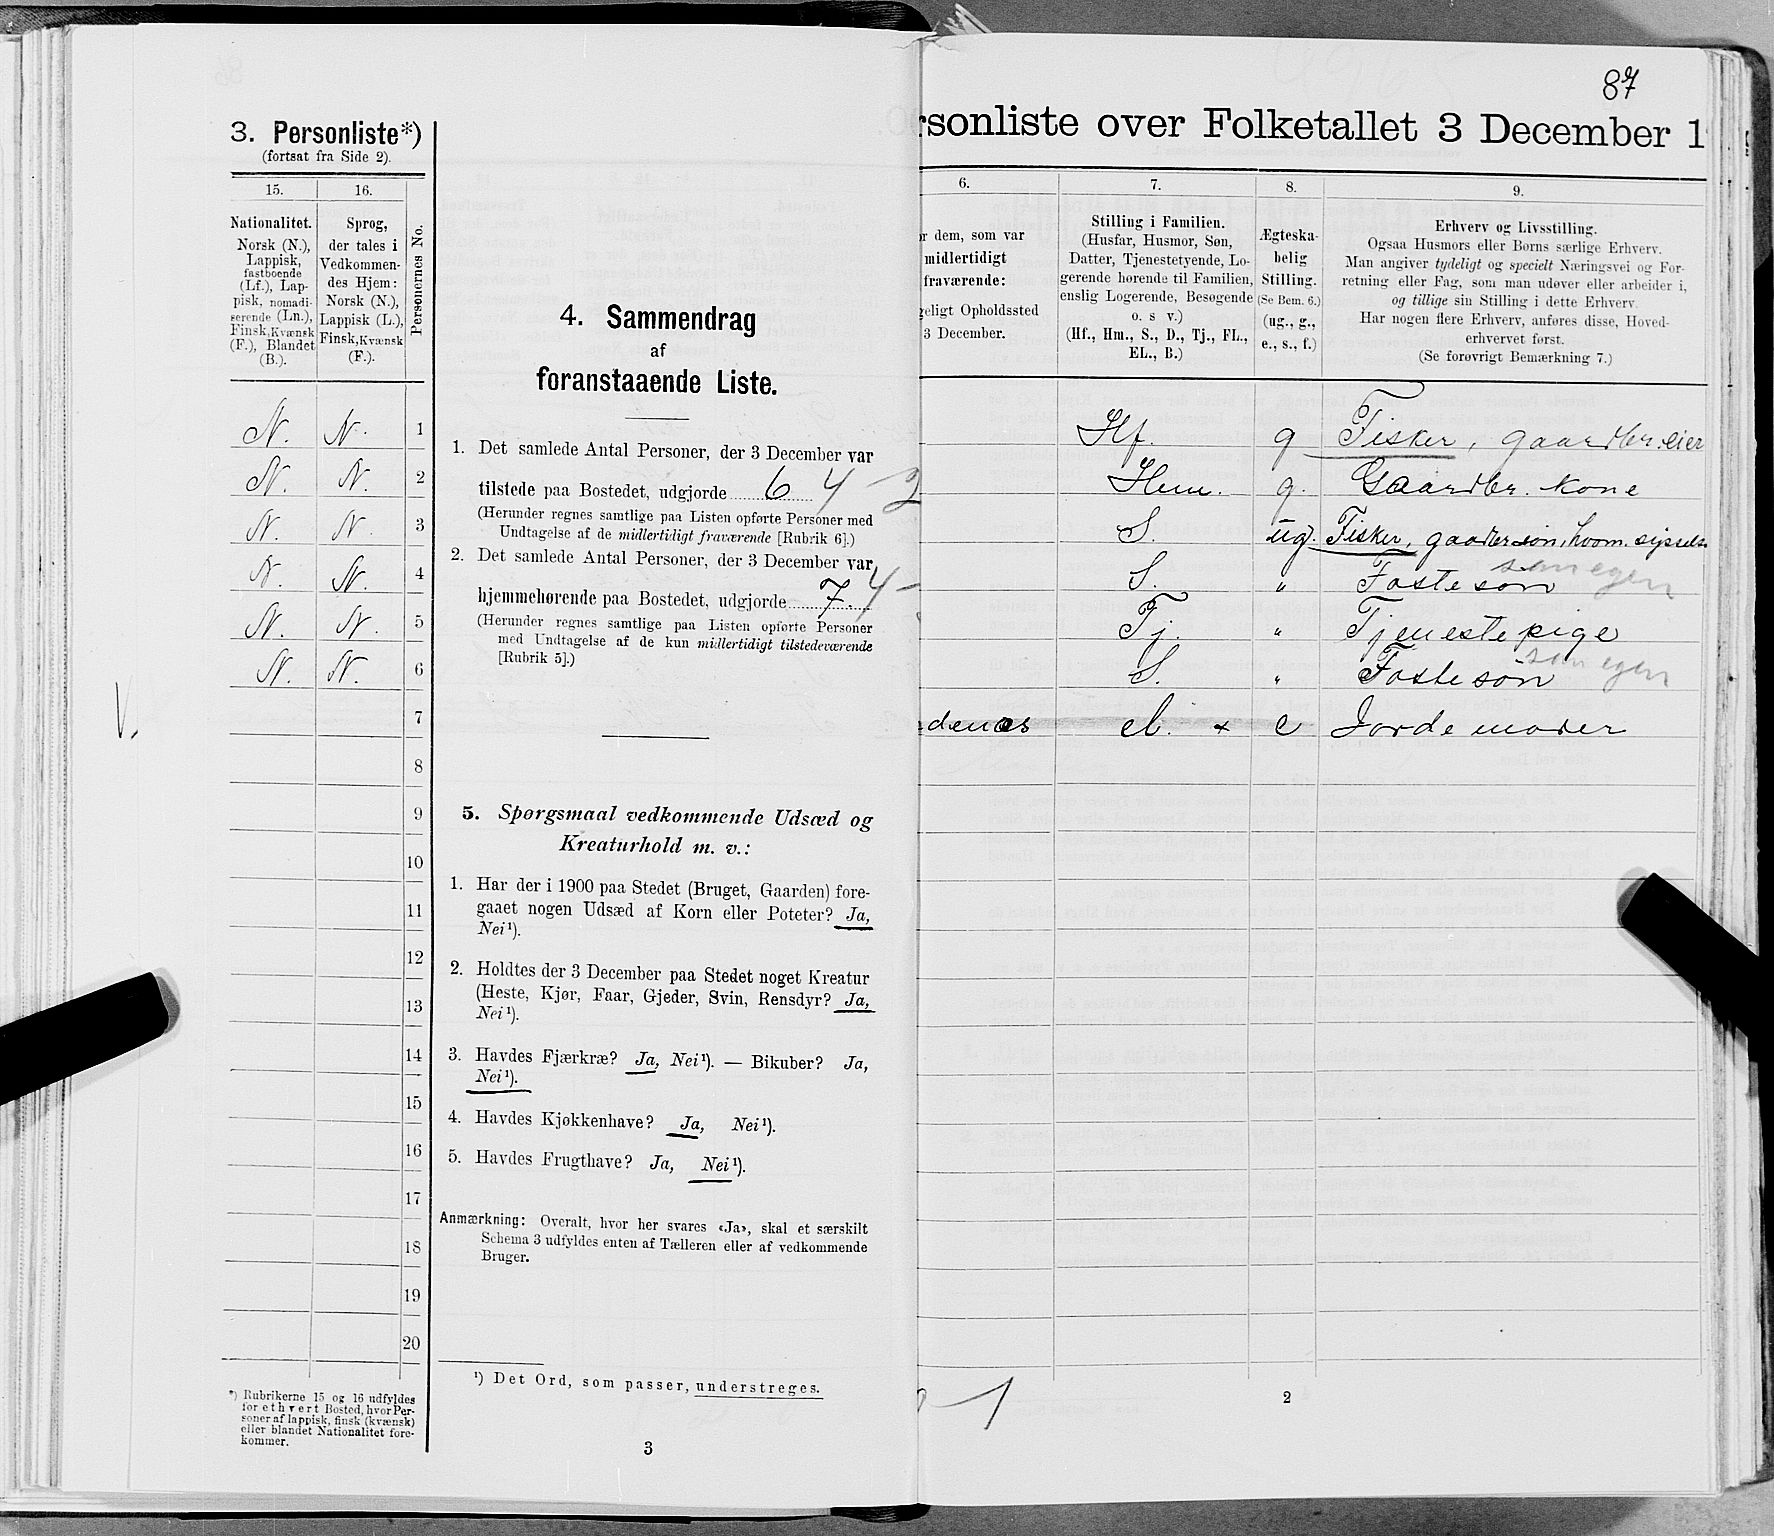 3. Personliste*)
(fortsat fra Side 2).
15.
16.
Nationalitet.
Norsk (N.),
Lappisk,
fastboende
(Lf.), Lap-
pisk, nomadi-
serende (Ln.),
Finsk, Kvænsk
(F.), Blandet
(B.).
Sprog,
der tales i
Vedkommen-
des Hjem:
Norsk (N.),
Lappisk (L.),
Finsk, Kvænsk
(F.).
Personernes No.
N. N. 1
N. N. 2
N. N. 3
N. N. 4
N. N. 5
N. N. 6
7
8
9
10
11
12
13
14
15
16
17
18
19
20
V.
*) Rubrikerne 15 og 16 udfyldes
for ethvert Bosted, hvor Per-
soner af lappisk, finsk (kvænsk)
eller blandet Nationalitet fore-
kommer.
4. Sammendrag
af
foranstaaende Liste.
1. Det samlede Antal Personer, der 3 December var
tilstede paa Bostedet, udgjorde 6 4 - 2
(Herunder regnes samtlige paa Listen opførte Personer med
Undtagelse af de midlertidigt fraværende [Rubrik 6].)
2. Det samlede Antal Personer, der 3 December var
hjemmehørende paa Bostedet, udgjorde 7. 4 -
(Herunder regnes samtlige paa Listen opførte Personer
med Undtagelse af de kun midlertidigt tilstedeværende
[Rubrik 5].)
5. Spørgsmaal vedkommende Udsæd og
Kreaturhold m. v.:
1. Har der i 1900 paa Stedet (Bruget, Gaarden) fore-
gaaet nogen Udsæd af Korn eller Poteter? Ja,
Nei¹).
2. Holdtes der 3 December paa Stedet noget Kreatur
(Heste, Kjør, Faar, Gjeder, Svin, Rensdyr? Ja,
Nei¹).
3. Havdes Fjærkræ? Ja, Nei¹). — Bikuber? Ja,
Nei¹).
4. Havdes Kjøkkenhave? Ja, Nei¹).
5. Havdes Frugthave? Ja, Nei¹).
Anmærkning: Overalt, hvor her svares «Ja», skal et særskilt
Schema 3 udfyldes enten af Tælleren eller af vedkommende
Bruger.
¹) Det Ord, som passer, understreges.
3
87
rsonliste over Folketallet 3 December 1
6.
7.
8.
9.
r dem, som var
midlertidigt
fraværende:
eligt Opholdssted
3 December.
Stilling i Familien.
(Husfar, Husmor, Søn,
Datter, Tjenestetyende, Lo-
gerende hørende til Familien,
enslig Logerende, Besøgende
o. s v.)
(Hf., Hm., S., D., Tj., FL.,
EL., B.)
Ægteska-
belig
Stilling.
(Se Bem. 6.)
(ug., g.,
e., s., f.)
Erhverv og Livsstilling.
Ogsaa Husmors eller Børns særlige Erhverv.
Man angiver tydeligt og specielt Næringsvei og For-
retning eller Fag, som man udøver eller arbeider i,
og tillige sin Stilling i dette Erhverv.
Har nogen flere Erhverv, anføres disse, Hoved-
erhvervet først.
(Se forøvrigt Bemærkning 7.)
Hf. g Fisker, gaardbr. eier
Hm. g. Gaardbr. kone
S. ug. Fisker, gaardbr søn, hvom. syssels
S. " Fostesøn søn egen
Tj. " Tjenestepige
S. " Fostesøn søn egen
denæs el. x e Jordemoder
1
2